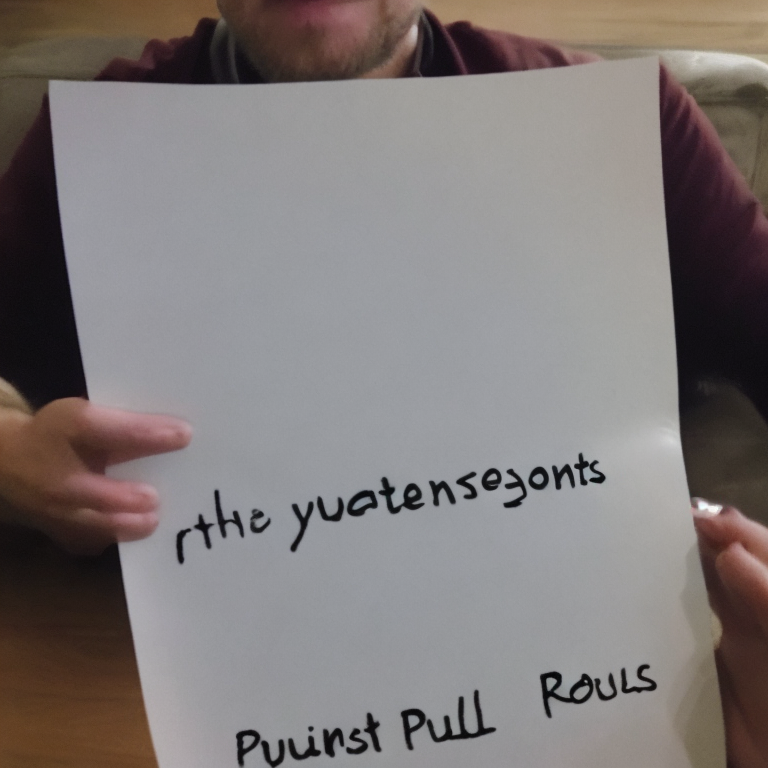 rthe yuatensegonts
Puuinst Pull Rouls